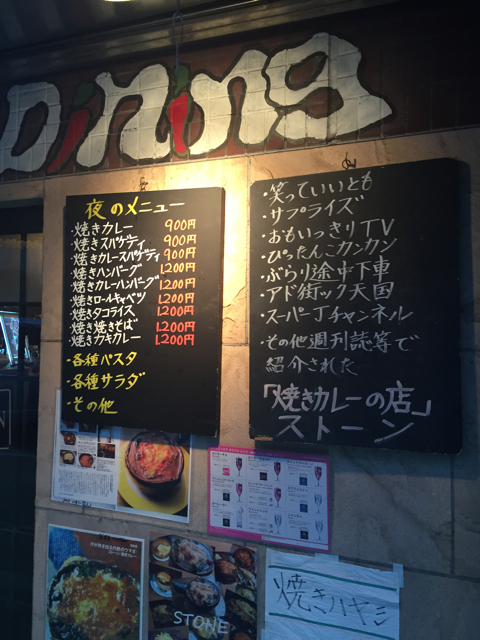 Dining
夜のメニュー
・焼きカレー 900円
・焼きスパゲティ 900円
・焼きカレースパゲティ 900円
・焼きハンバーグ 1,200円
・焼きカレーハンバーグ 1,200円
・焼きロールキャベツ 1,200円
・焼きタコライス 1,200円
・焼き焼きそば 1,200円
・焼きカキカレー 1,200円
・各種パスタ
・各種サラダ
・その他
・笑っていいとも
・サプライズ
・おもいっきりTV
・ひったんこカンカン
・ぶらり途中下車
・アド街ック天国
・スーパーJチャンネル
・その他週刊誌等で
紹介された
「焼きカレーの店」
ストーン
STONE
焼きハヤシ